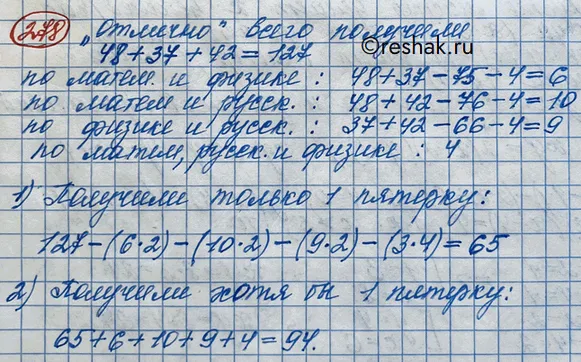 278 „отлично" всего получили
©reshak.ru
48+37+42=127
по матем и физике : 48+37-75-4=6
по матем и русск. : 48+42-76-4=10
по физике и русск. : 37+42-66-4=9
по матем, русск. и физике : 4
1) Получили только 1 пятерку:
127-(6·2)-(10·2)-(9·2)-(3·4)=65
2) Получили хотя бы 1 пятерку:
65+6+10+9+4=94.